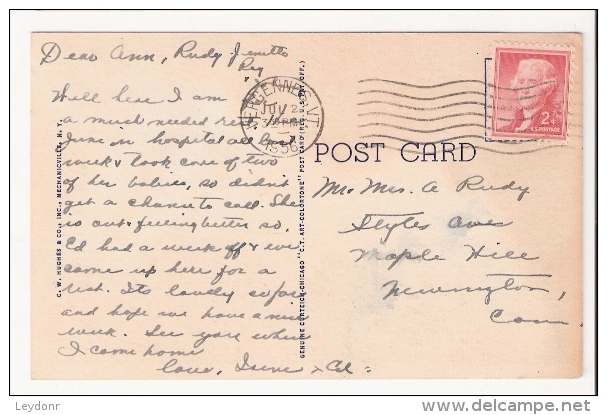 Dear Ann, Rudy Jenette
Ray
Well here I am
a much needed rest
June in hospital all last
week & took care of two
of her babies, so didn't
get a chance to call. She
is out & feeling better so,
Ed had a week off & we
came up here for a
rest. Its lovely so far
and hope we have a nice
week. See you when
I come home
Love, Irene & Ed =
VERGENNES, VT.
JUL 2
PM
1956
2¢
U.S. POSTAGE
POST CARD
Mr. Mrs. A Rudy
Styles Ave
Maple Hill
Newington,
Conn.
C. W. HUGHES & CO., INC., MECHANICVILLE, N. Y.
GENUINE CURTEICH-CHICAGO "C. T. ART-COLORTONE" POST CARD (REG. U. S. PAT. OFF.)
Leydonr
delcampe.net